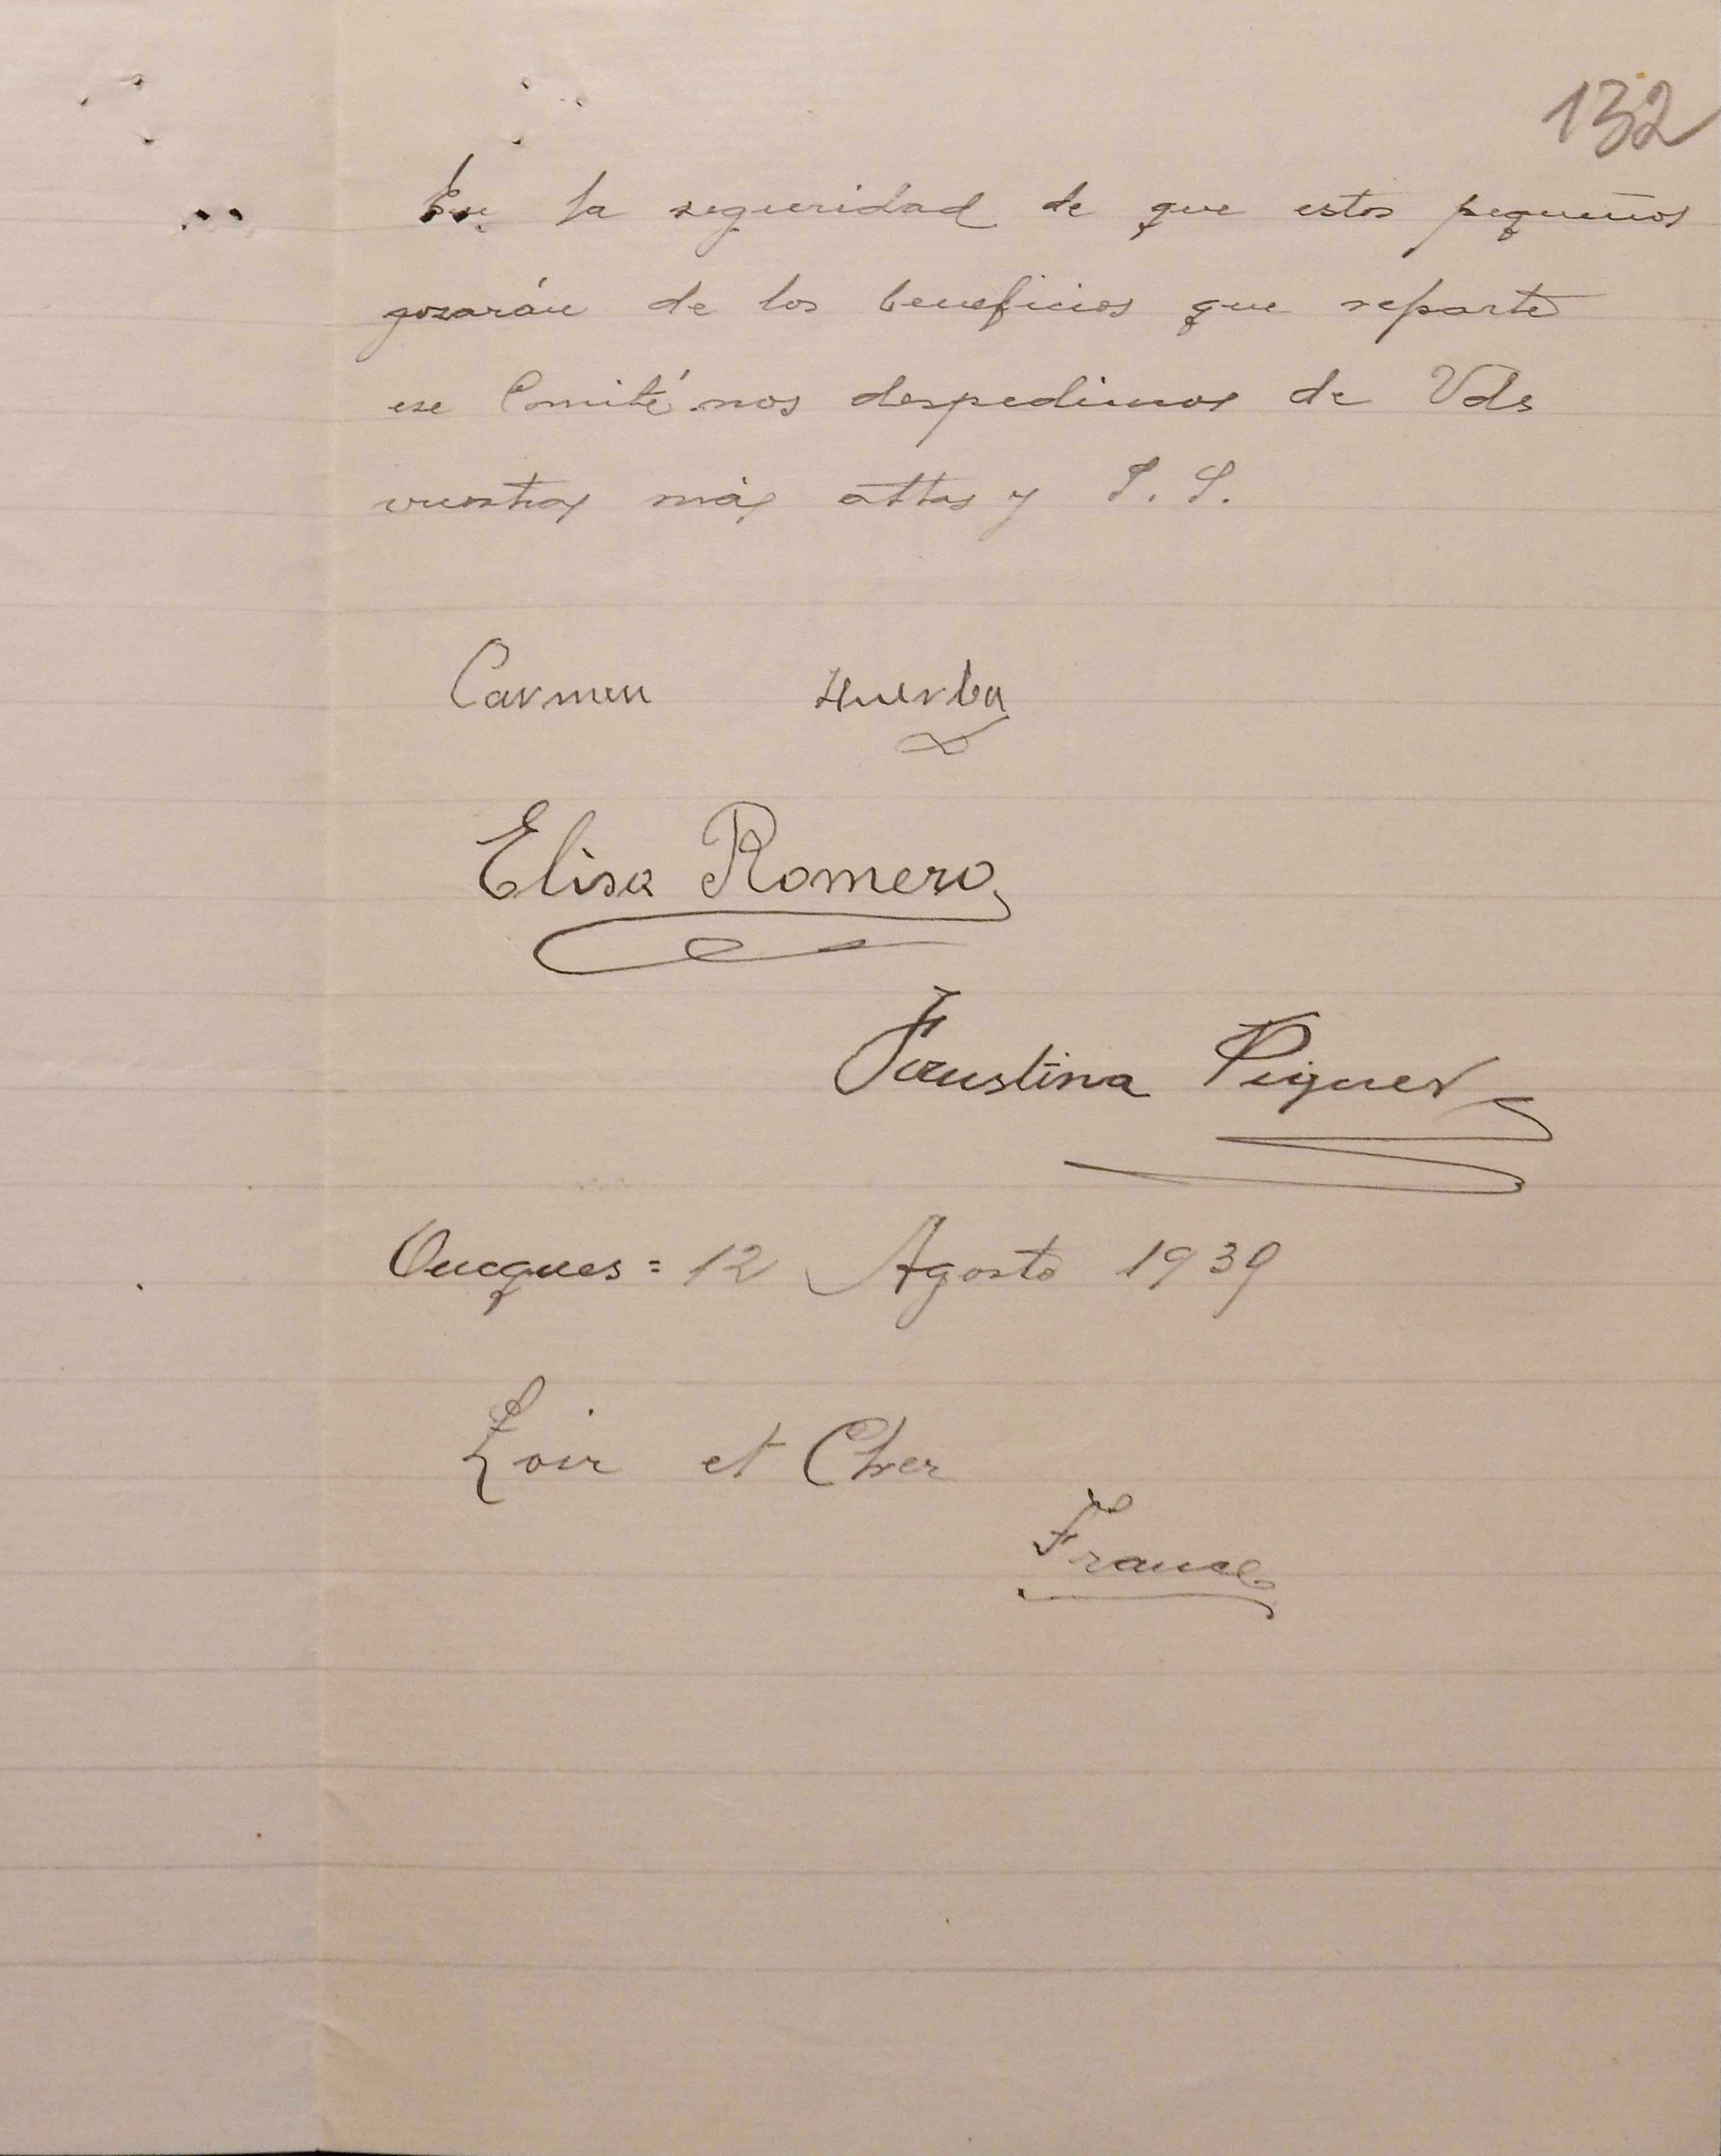 132
En la seguridad de que estos pequeños
gozarán de los beneficios que reparte
ese Comité nos despedimos de Vds
vuestras más attas y S. S.
Carmen Huerba
Elisa Romero
Faustina Piquer
Oucques = 12 Agosto 1939
Loir et Cher
France